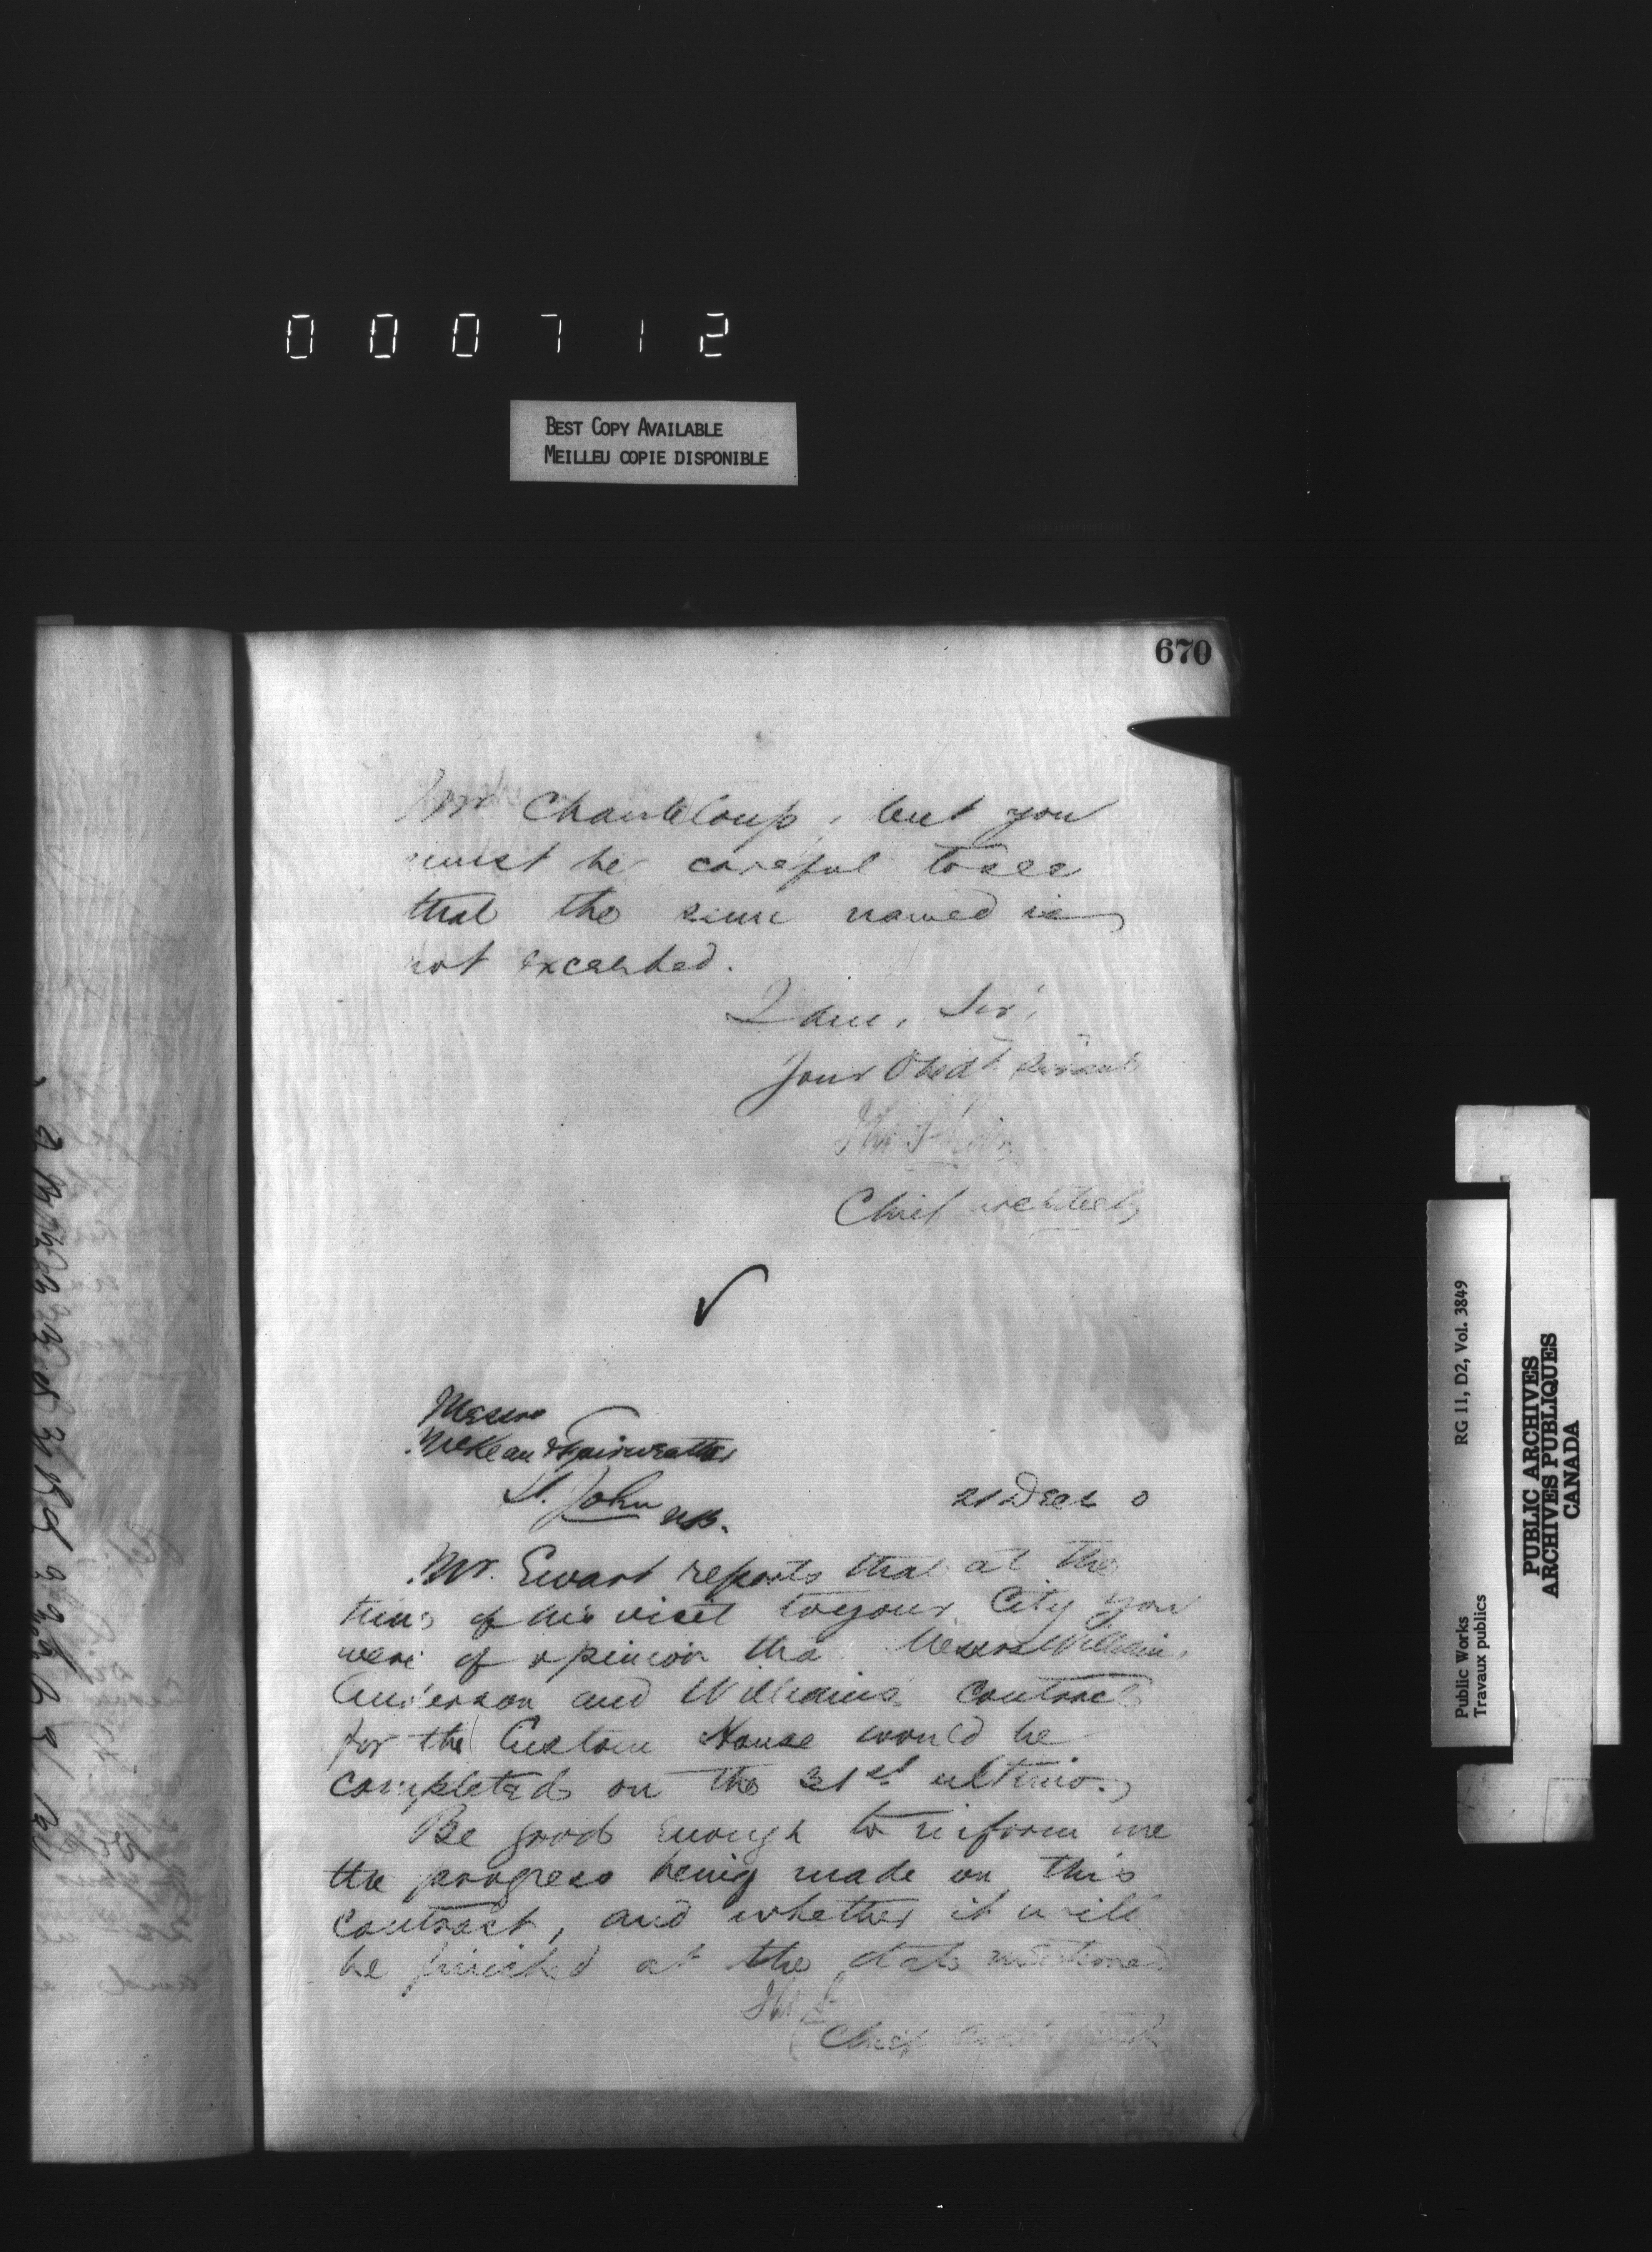 000712
BEST COPY AVAILABLE
MEILLEU COPIE DISPONIBLE
670
Mr Chanteloup, but you
must be careful to see
that the sum named is
not exceeded.
I am, Sir,
Your Obedt servant
Chief Architect
✓
Messrs
McKean & Fairweather
St. John NB.
21 Decr 0
Mr. Ewart reports that at the
time of his visit to your City you
were of opinion tha Messrs William,
Anderson and Williams contract
for the Custom House would be
completed on the 31st ultimo.
Be good enough to inform me
the progress being made on this
contract, and whether it will
be finished at the date mentioned
Chief
Public Works
Travaux publics
RG 11, D2, Vol. 3849
PUBLIC ARCHIVES
ARCHIVES PUBLIQUES
CANADA